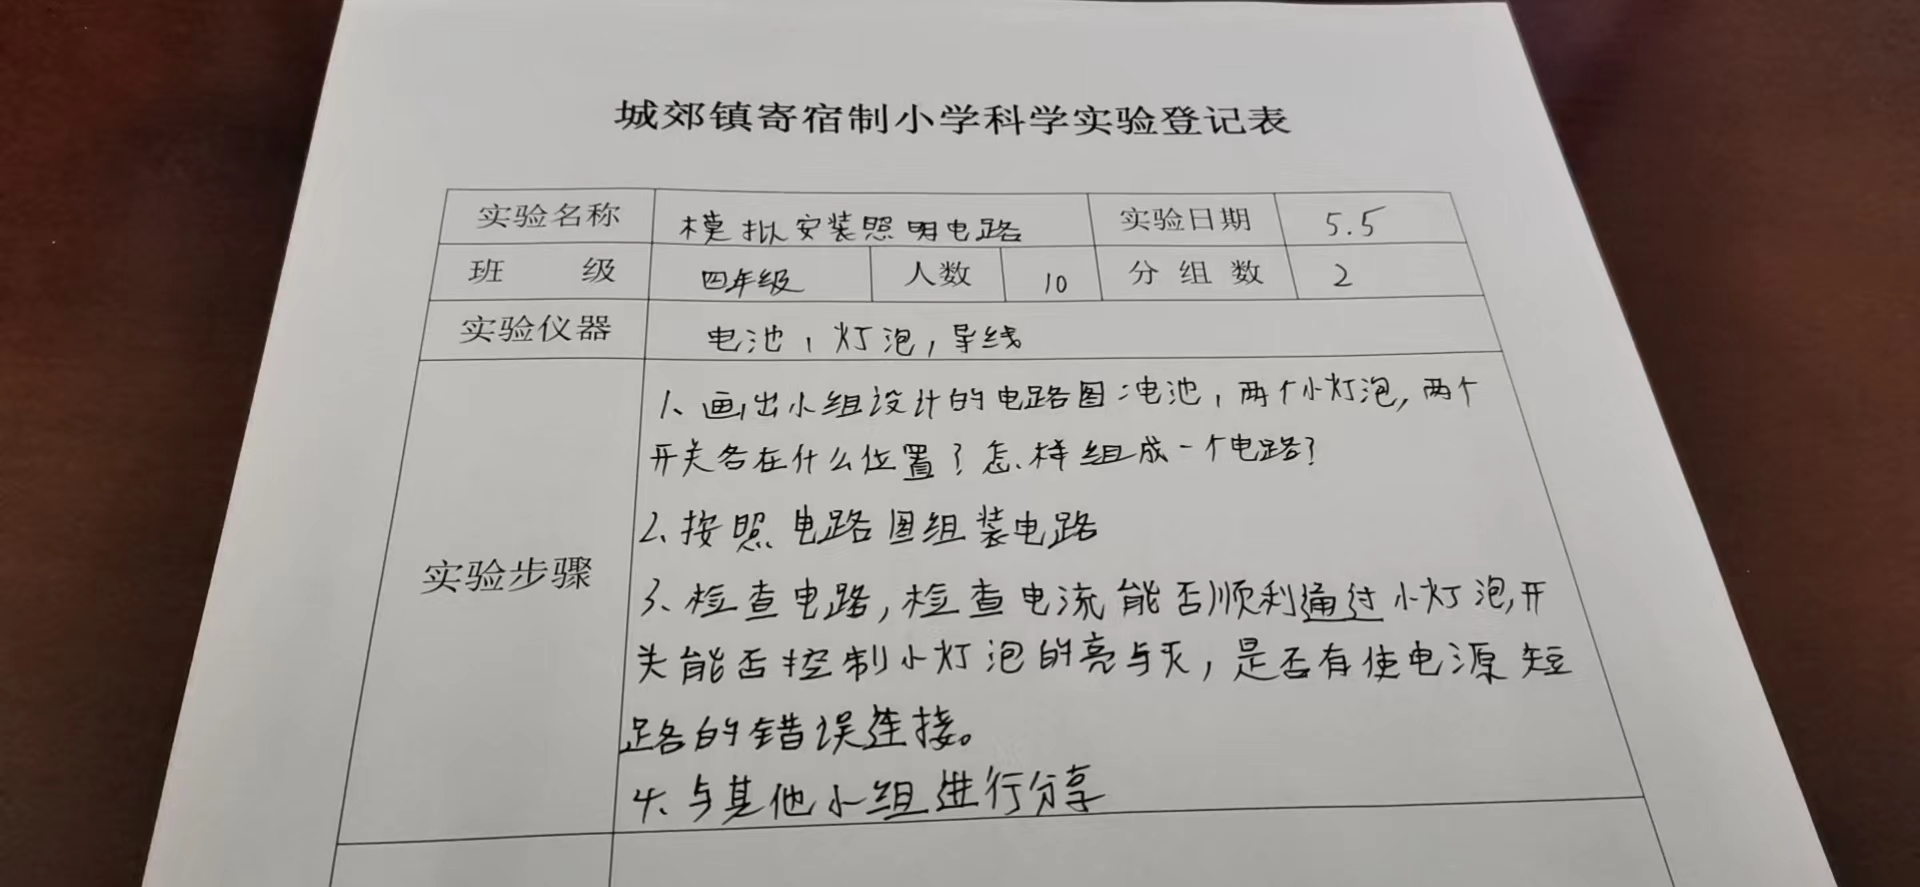 城郊镇寄宿制小学科学实验登记表
实验名称 模拟安装照明电路 实验日期 5.5
班 级 四年级 人数 10 分组数 2
实验仪器 电池，灯泡，导线
1、画出小组设计的电路图：电池，两个小灯泡，两个
开关各在什么位置？怎样组成一个电路？
2、按照电路图组装电路
实验步骤
3、检查电路，检查电流能否顺利通过小灯泡，开
关能否控制小灯泡的亮与灭，是否有使电源短
路的错误连接。
4、与其他小组进行分享